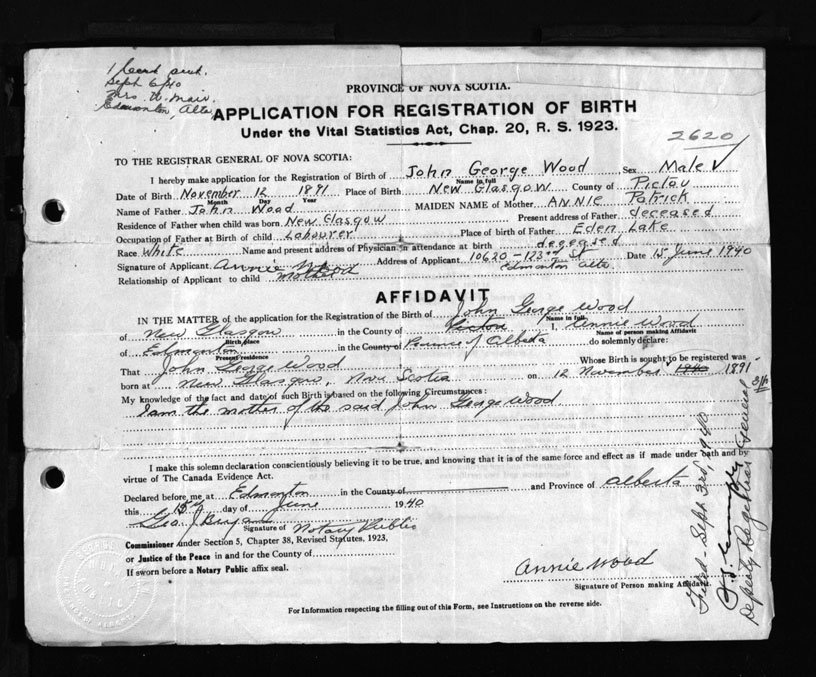 1 Cert sent.
Sept 6/40
Mrs. W. Mair
Edmonton, Alta.
PROVINCE OF NOVA SCOTIA.
APPLICATION FOR REGISTRATION OF BIRTH
Under the Vital Statistics Act, Chap. 20, R. S. 1923.
2620
TO THE REGISTRAR GENERAL OF NOVA SCOTIA:
I hereby make application for the Registration of Birth of John George Wood Sex Male
Name in full
Date of Birth November 12 1891 Place of Birth New Glasgow County of Pictou
Month Day Year
Name of Father John Wood MAIDEN NAME of Mother ANNIE Patrick
Residence of Father when child was born New Glasgow Present address of Father deceased
Occupation of Father at Birth of child Labourer Place of birth of Father Eden Lake
Race White Name and present address of Physician in attendance at birth deceased
Signature of Applicant Annie Address of Applicant 10620-123rd St Date 15 June 1940
Edmonton Alta.
Relationship of Applicant to child mother
AFFIDAVIT
IN THE MATTER of the application for the Registration of Birth of John George Wood
Name in full
of New Glasgow in the County of Pictou I, Annie Wood
Birth place Name of person making Affidavit
of Edmonton in the County of Province of Alberta do solemnly declare:
Present residence
That John George Wood Whose Birth is sought to be registered was
born at New Glasgow, Nova Scotia on 12 November 1940 1891
My knowledge of the fact and date of such Birth is based on the following Circumstances:
I am the mother of the said John George Wood
I make this solemn declaration conscientiously believing it to be true, and knowing that it is of the same force and effect as if made under oath and by
virtue of The Canada Evidence Act.
Declared before me at Edmonton in the County of and Province of Alberta
this 15 day of June 1940
Geo. J. Bryan Notary Public
Signature of
Commissioner under Section 5, Chapter 38, Revised Statutes, 1923,
or Justice of the Peace in and for the County of
If sworn before a Notary Public affix seal.
Annie Wood
Signature of Person making Affidavit.
For Information respecting the filling out of this Form, see Instructions on the reverse side.
Filed - Sept 3rd, 1940
Deputy Registrar General